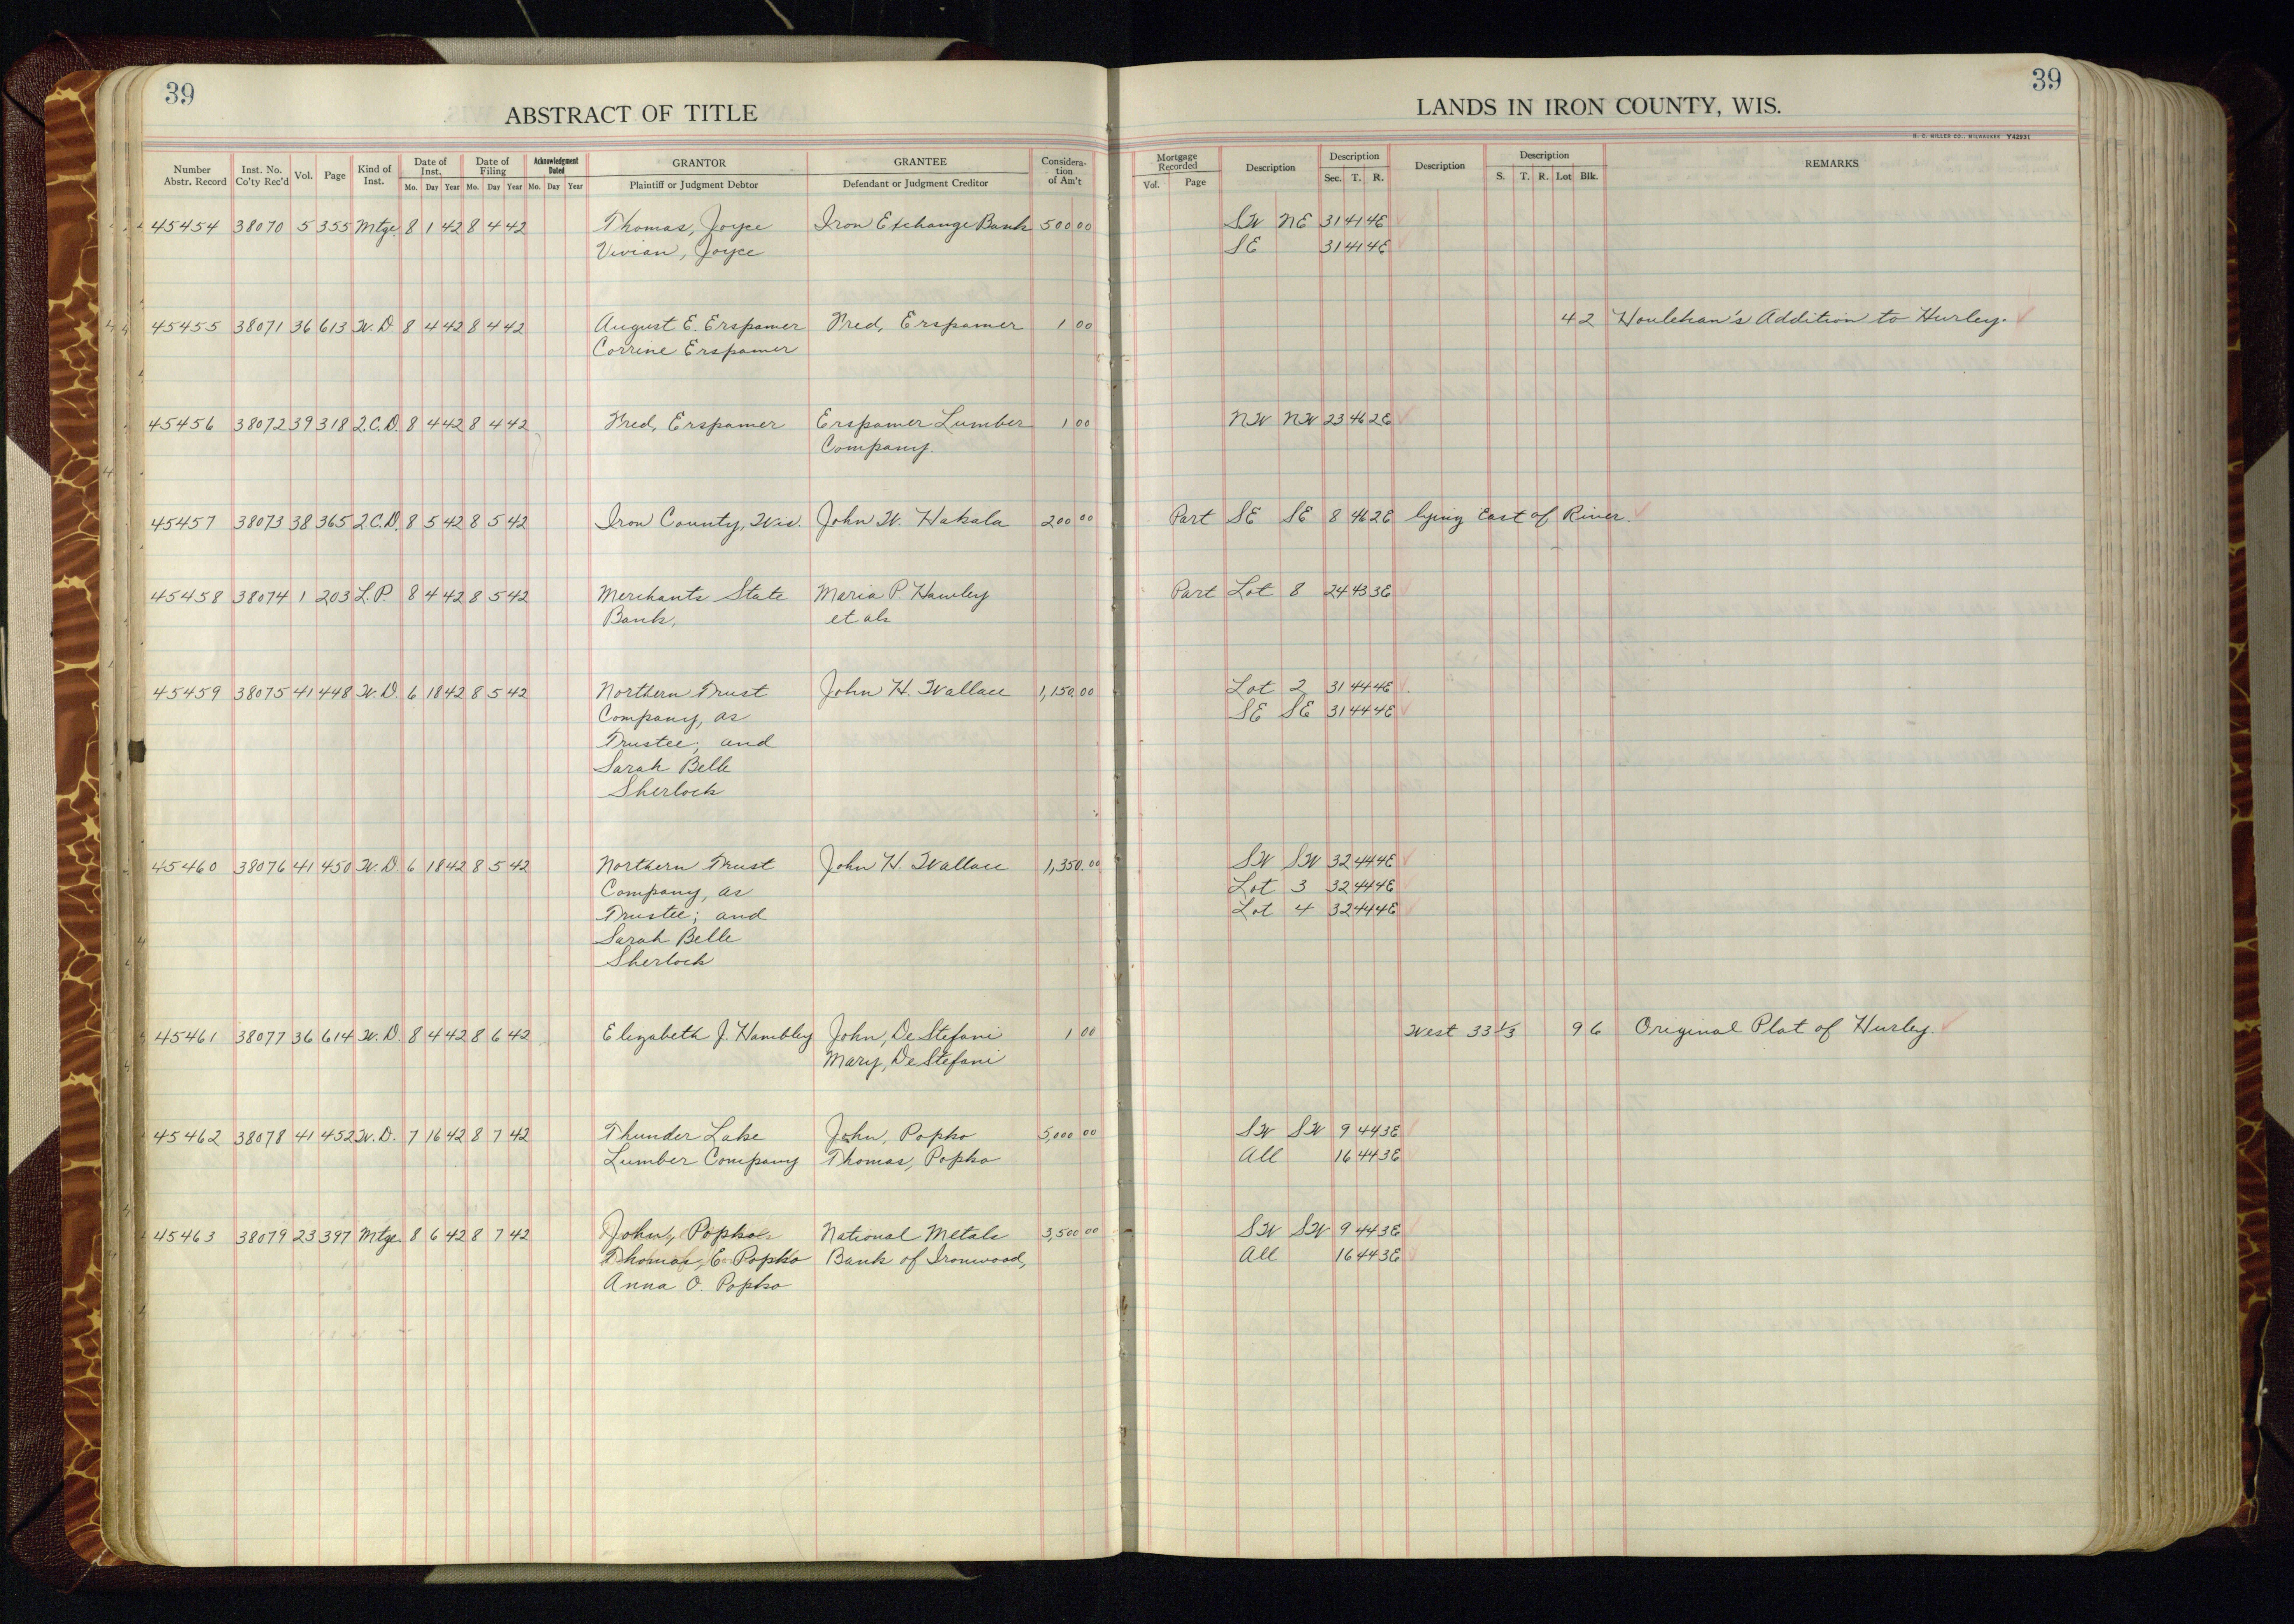 39
39
ABSTRACT OF TITLE
LANDS IN IRON COUNTY, WIS.
H. C. MILLER CO., MILWAUKEE Y42931
Number Abstr. Record Inst. No. Co'ty Rec'd Vol. Page Kind of Inst. Date of Inst. Mo. Day Year Date of Filing Mo. Day Year Acknowledgment Dated Mo. Day Year GRANTOR Plaintiff or Judgment Debtor GRANTEE Defendant or Judgment Creditor Considera-tion of Am't Mortgage Recorded Vol. Page Description Description Sec. T. R. Description Description S. T. R. Lot Blk. REMARKS
45454 38070 5 355 Mtge. 8 1 42 8 4 42 Thomas, Joyce Iron Exchange Bank 500 00 SW NE 31 41 4E
Vivian, Joyce SE 31 41 4E
45455 38071 36 613 W.D. 8 4 42 8 4 42 August E. Erspamer Fred, Erspamer 1 00 4 2 Houlehan's Addition to Hurley.
Corrine Erspamer
45456 38072 39 318 2.C.D. 8 4 42 8 4 42 Fred, Erspamer Erspamer Lumber 1 00 NW NW 23 46 2E
Company.
45457 38073 38 365 2.C.D. 8 5 42 8 5 42 Iron County, Wis. John W. Hakala 200 00 Part SE SE 8 46 2E lying East of River.
45458 38074 1 203 L.P. 8 4 42 8 5 42 Merchants State Maria P. Hawley Part Lot 8 24 43 3E
Bank, et als
45459 38075 41 448 W.D. 6 18 42 8 5 42 Northern Trust John H. Wallace 1,150.00 Lot 2 31 44 4E
Company, as SE SE 31 44 4E
Trustee; and
Sarah Belle
Sherlock
45460 38076 41 450 W.D. 6 18 42 8 5 42 Northern Trust John H. Wallace 1,350.00 SW SW 32 44 4E
Company, as Lot 3 32 44 4E
Trustee; and Lot 4 32 44 4E
Sarah Belle
Sherlock
45461 38077 36 614 W.D. 8 4 42 8 6 42 Elizabeth J. Hambley John, De Stefani 1 00 West 33 1/3 9 6 Original Plat of Hurley.
Mary, De Stefani
45462 38078 41 452 W.D. 7 16 42 8 7 42 Thunder Lake John, Popko 5,000 00 SW SW 9 44 3E
Lumber Company Thomas, Popko All 16 44 3E
45463 38079 23 397 Mtge. 8 6 42 8 7 42 John, Popko National Metals 3,500 00 SW SW 9 44 3E
Thomas, E. Popko Bank of Ironwood, All 16 44 3E
Anna O. Popko